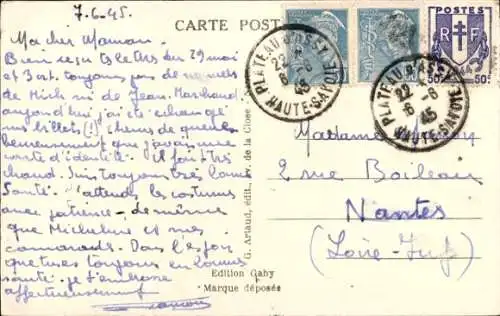 7.6.45.
CARTE POST
Ma chère Maman.
Bien reçu ta lettre du 29 mai
et 3 ort. toujours pas de
de Mich ni de Jean. Marchand
aujourd'hui j'ai été échangé
mes billets (!)
heureusement que j'avais une
carte d'identité. Il fait très
chaud. Suis toujours très bonne
Santé. J'attends les costumes
avec patience. de même
que Micheline et mes
camarades. Dans l'espoir
que tu es toujours en bonne
santé. je t'embrasse
affectueusement
G. Artaud, édit., Av. de la Close
Edition Gaby
Marque déposée
POSTES
RF
50c 50c
PLATEAU D'ASSY
22 -6
6 45
HAUTE-SAVOIE
PLATEAU D'ASSY
22 -6
6 45
HAUTE-SAVOIE
Madame
2 rue Boileau
Nantes
(Loire-Inf)